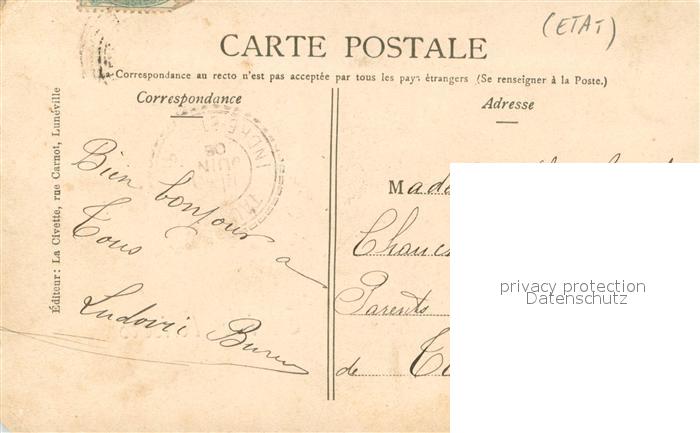 (ETAT)
CARTE POSTALE
La Correspondance au recto n'est pas acceptée par tous les pays étrangers (Se renseigner à la Poste.)
Correspondance
Adresse
Éditeur: La Civette, rue Carnot, Lunéville
JUIN
05
Bien bonjour a
Tous
Ludovic
Mada
Parents
de
privacy protection
Datenschutz